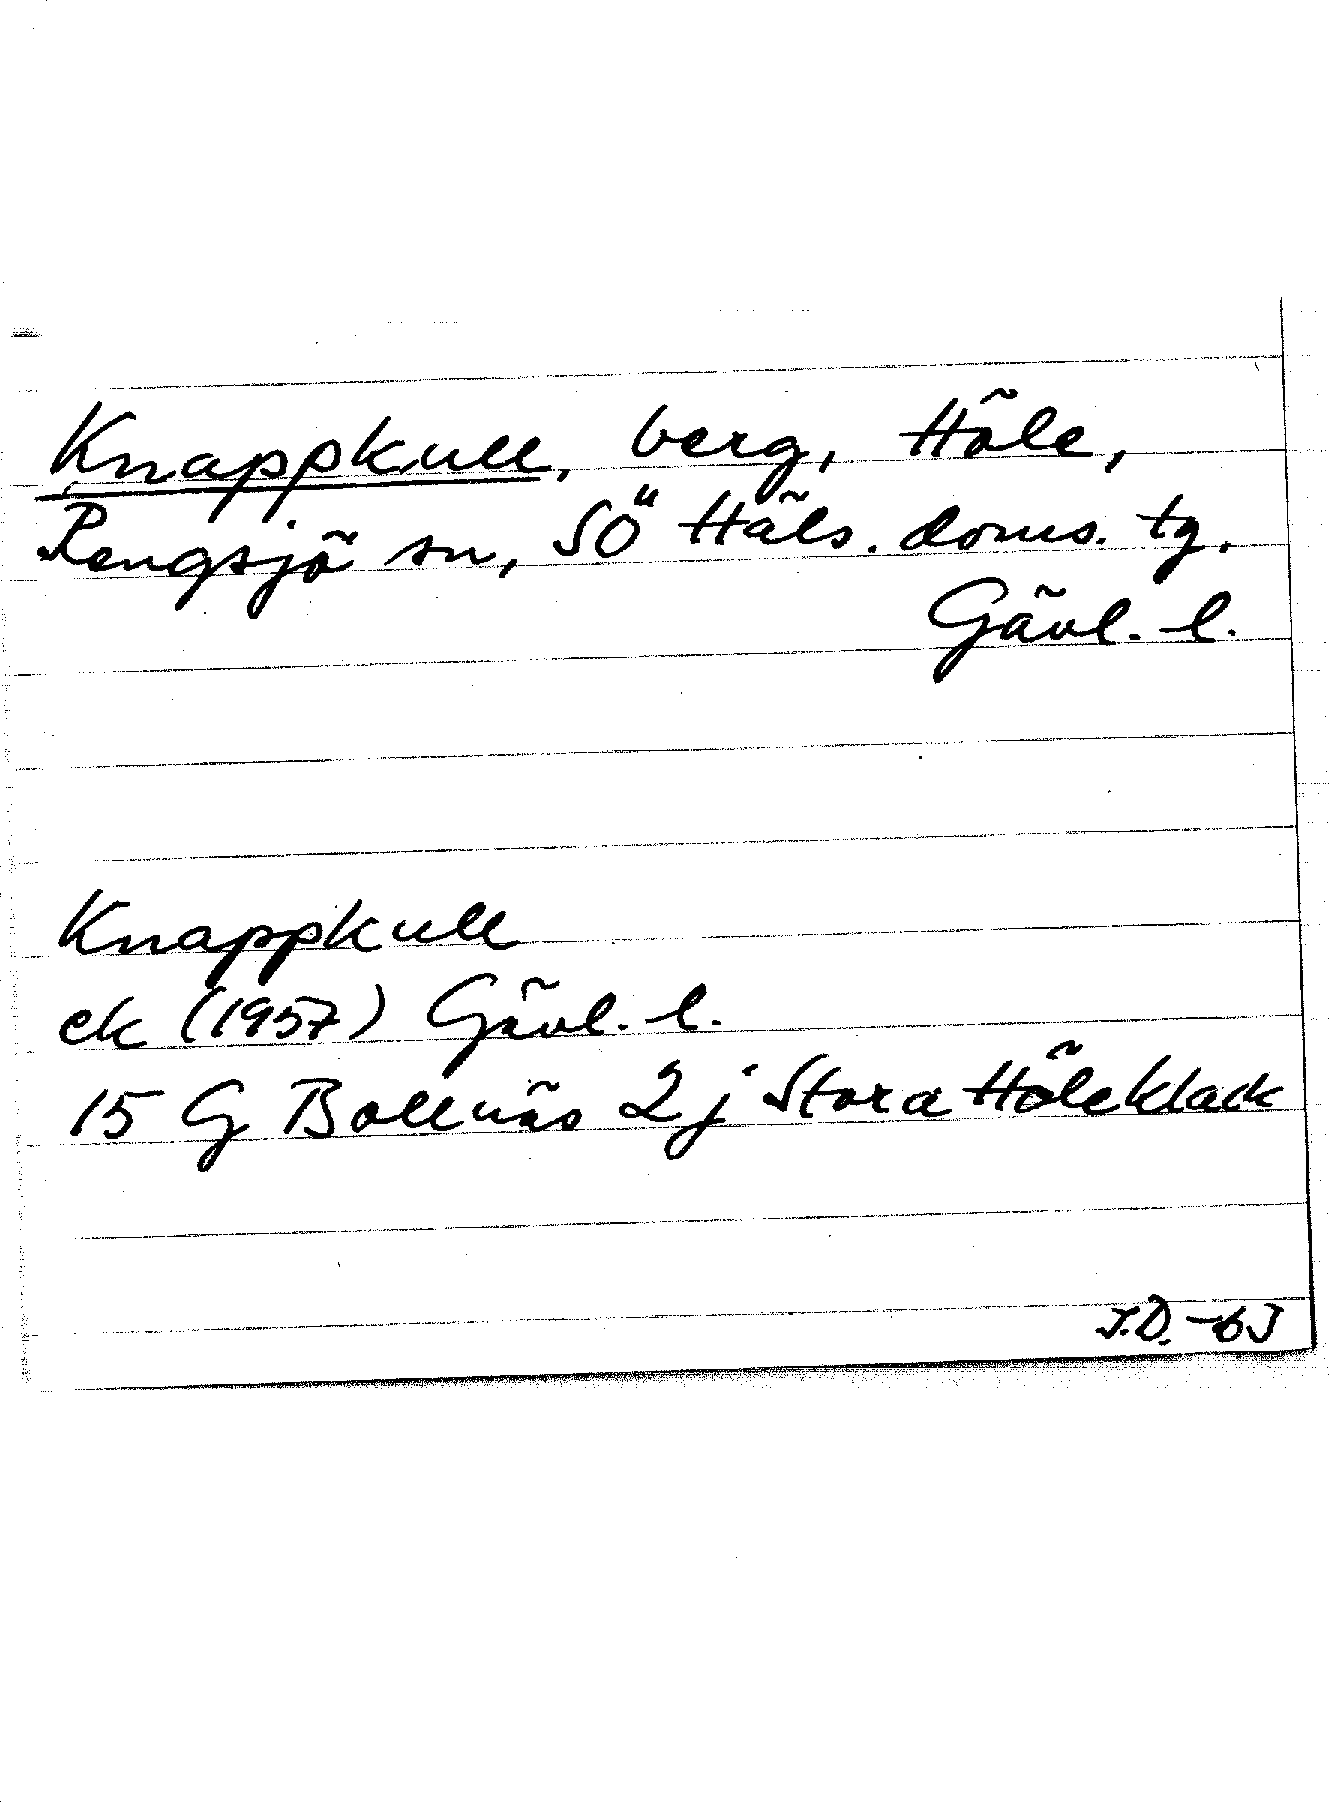 Knappkull, berg, Höle,
Rengsjö sn, SÖ Häls. doms. tg.
Gävl. l.
Knappkull
ek (1957) Gävl. l.
15 G Bollnäs 2 j Stora Höleklack
I.D. -63